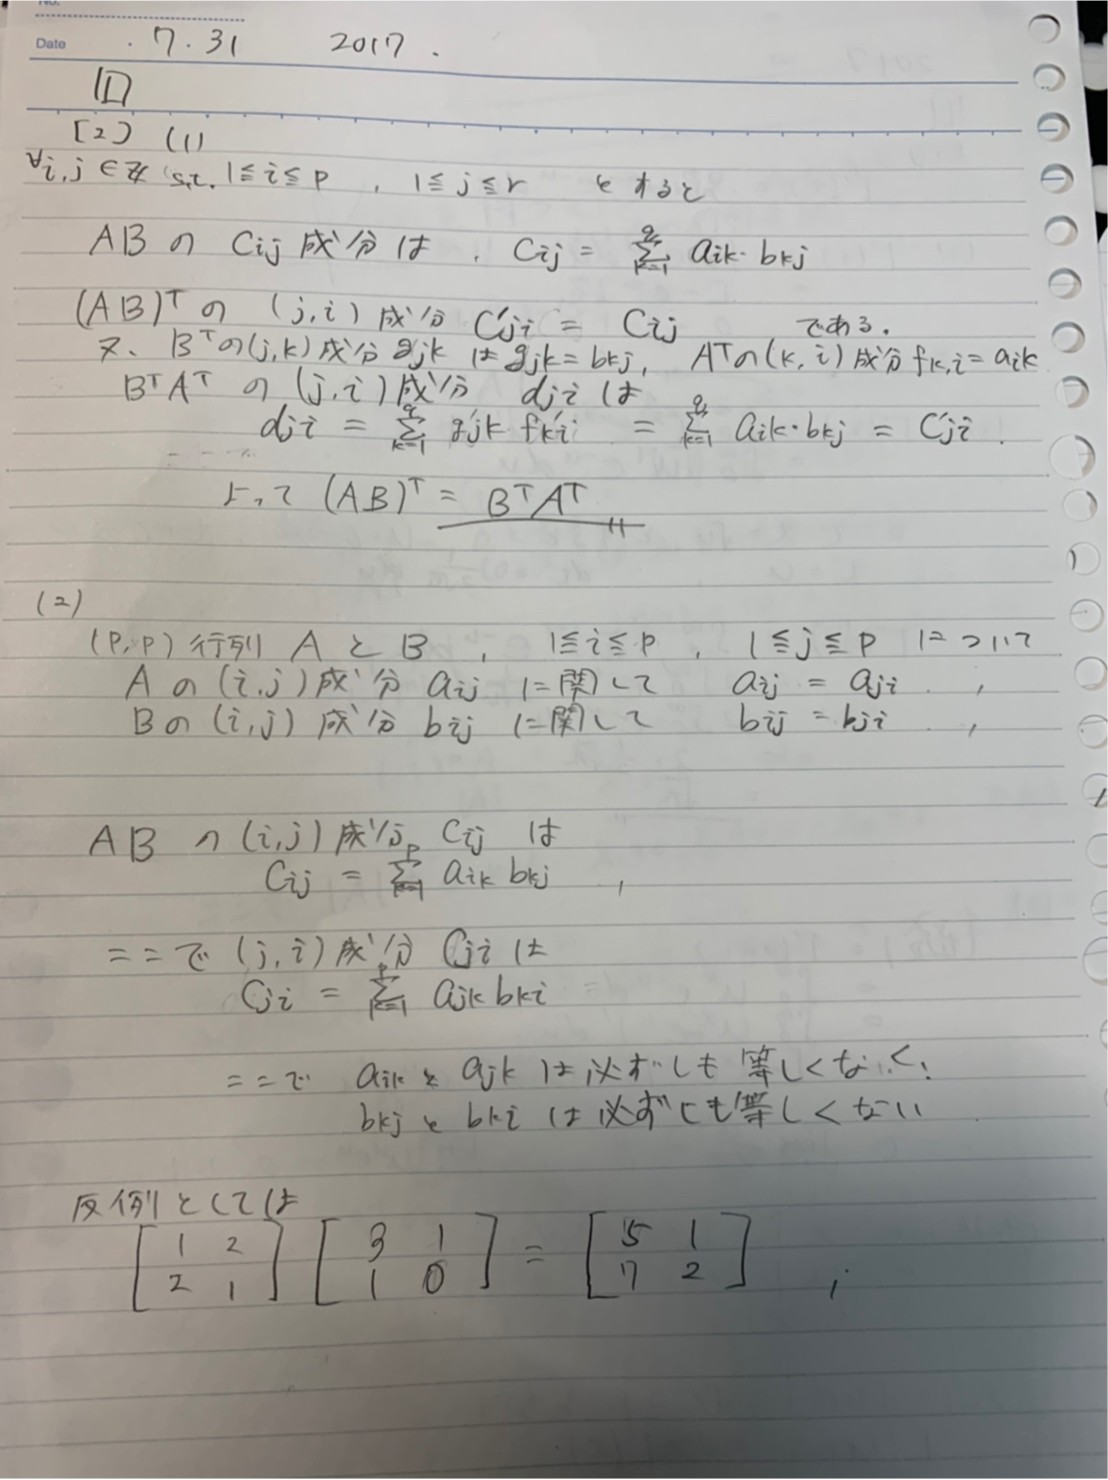 No.
Date . 7.31 2017.
[1]
[2] (1)
∀i,j ∈ Z s.t. 1≦i≦p , 1≦j≦r とすると
AB の Cij 成分は , Cij = Σ_{k=1}^{q} aik・bkj
(AB)ᵀの (j,i) 成分 C'ji = Cij である.
又、Bᵀの(j,k)成分 gjk は gjk=bkj, Aᵀの(k,i)成分 fk,i=aik
BᵀAᵀ の (j,i)成分 dji は
dji = Σ_{k=1}^{q} gjk fki = Σ_{k=1}^{q} aik・bkj = C'ji .
よって (AB)ᵀ = BᵀAᵀ
(2)
(P,P)行列 A と B , 1≦i≦p , 1≦j≦p について
A の (i,j)成分 aij に関して aij = aji ,
B の (i,j)成分 bij に関して bij = bji ,
AB の (i,j)成分 Cij は
Cij = Σ_{k=1}^{p} aik bkj ,
ここで (j,i)成分 Cji は
Cji = Σ_{k=1}^{p} ajk bki
ここで aik と ajk は必ずしも等しくなく,
bkj と bki は必ずしも等しくない
反例としては
[1 2 2 1] [3 1 1 0] = [5 1 7 2] ,